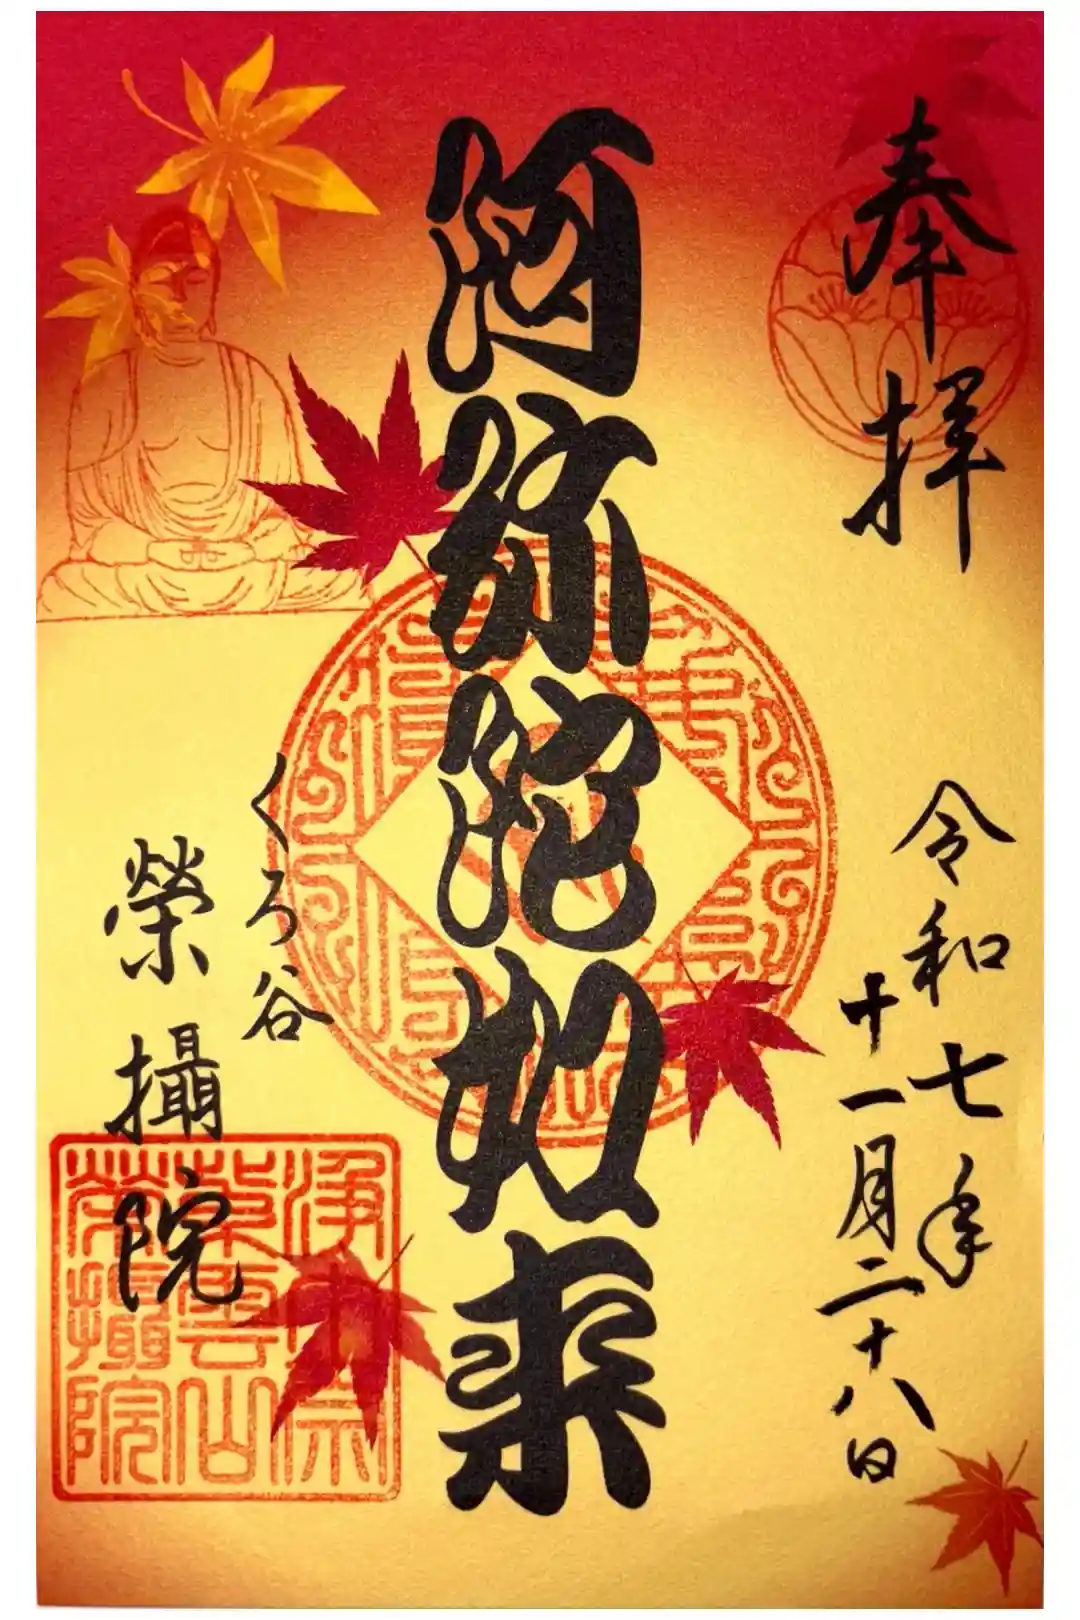 奉拝
令和七年
十一月二十八日
阿弥陀如来
くろ谷
榮攝院
浄土宗
紫雲山
榮攝院